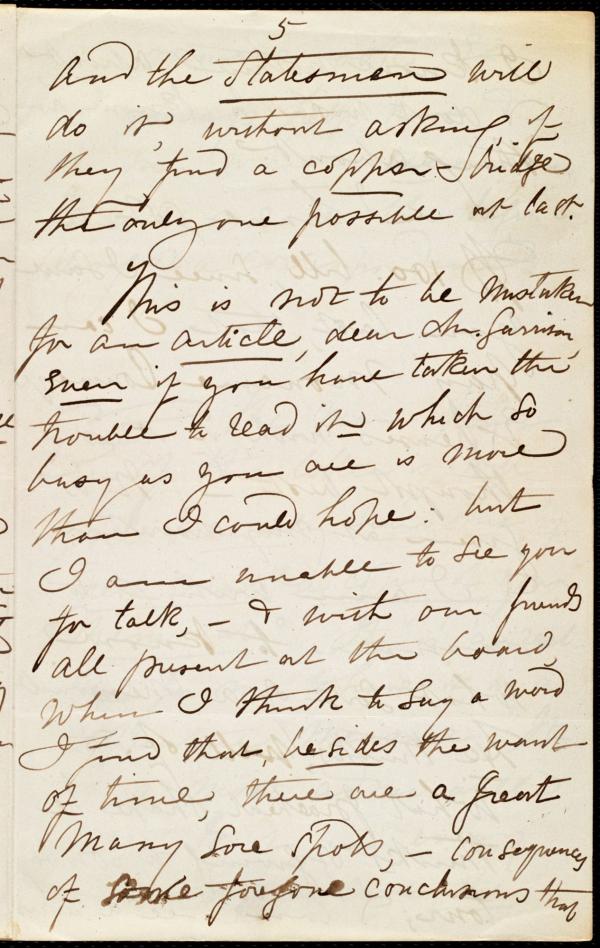 5
And the Statesmen will
do it, without asking, if
they find a copper-bridge
the only one possible at last.
This is not to be mistaken
for an article, dear Mr. Garrison,
even if you have taken the
trouble to read it which so
busy as you are is more
than I could hope: but
I am unable to see you
for talk, - & with our friends
all present at the board,
when I think to say a word
I find that, besides the want
of time, there are a great
many sore spots, - consequences
of some foregone conclusions that